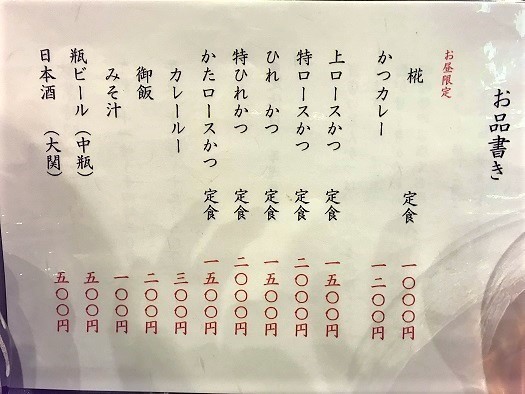 お品書き
お昼限定
椛 定食 一〇〇〇円
かつカレー 一二〇〇円
上ロースかつ 定食 一五〇〇円
特ロースかつ 定食 二〇〇〇円
ひれ かつ 定食 一五〇〇円
特ひれかつ 定食 二〇〇〇円
かたロースかつ 定食 一五〇〇円
カレールー 三〇〇円
御飯 二〇〇円
みそ汁 一〇〇円
瓶ビール（中瓶） 五〇〇円
日本酒 （大関） 五〇〇円